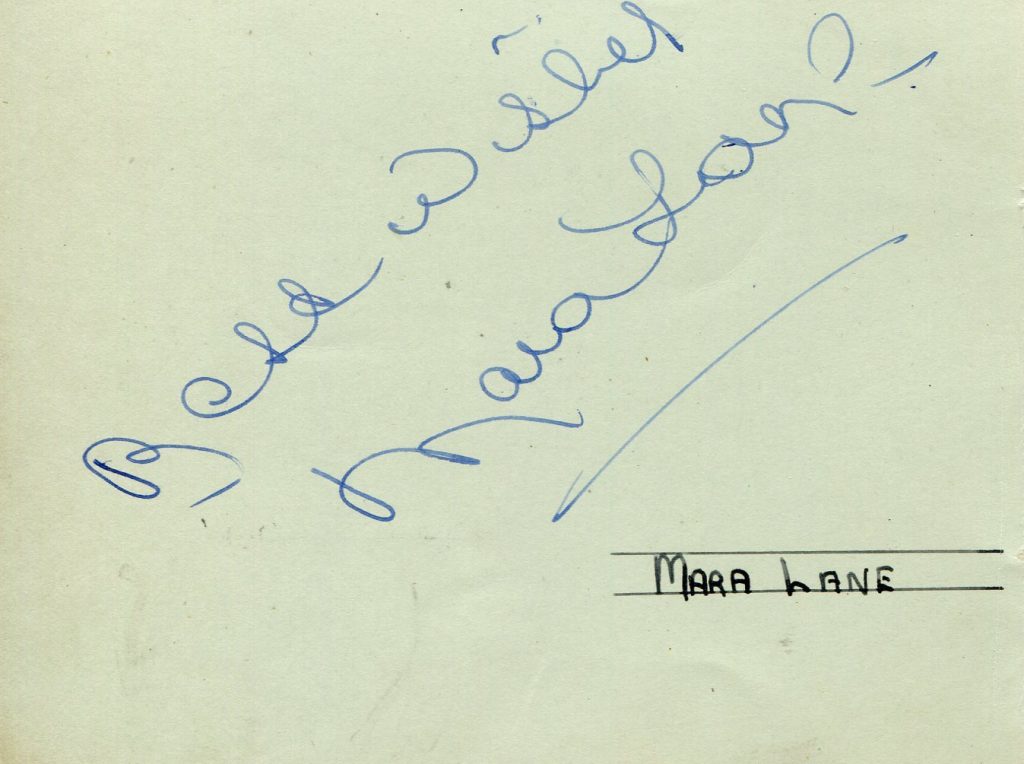 Best Wishes
Mara Lane
MARA LANE